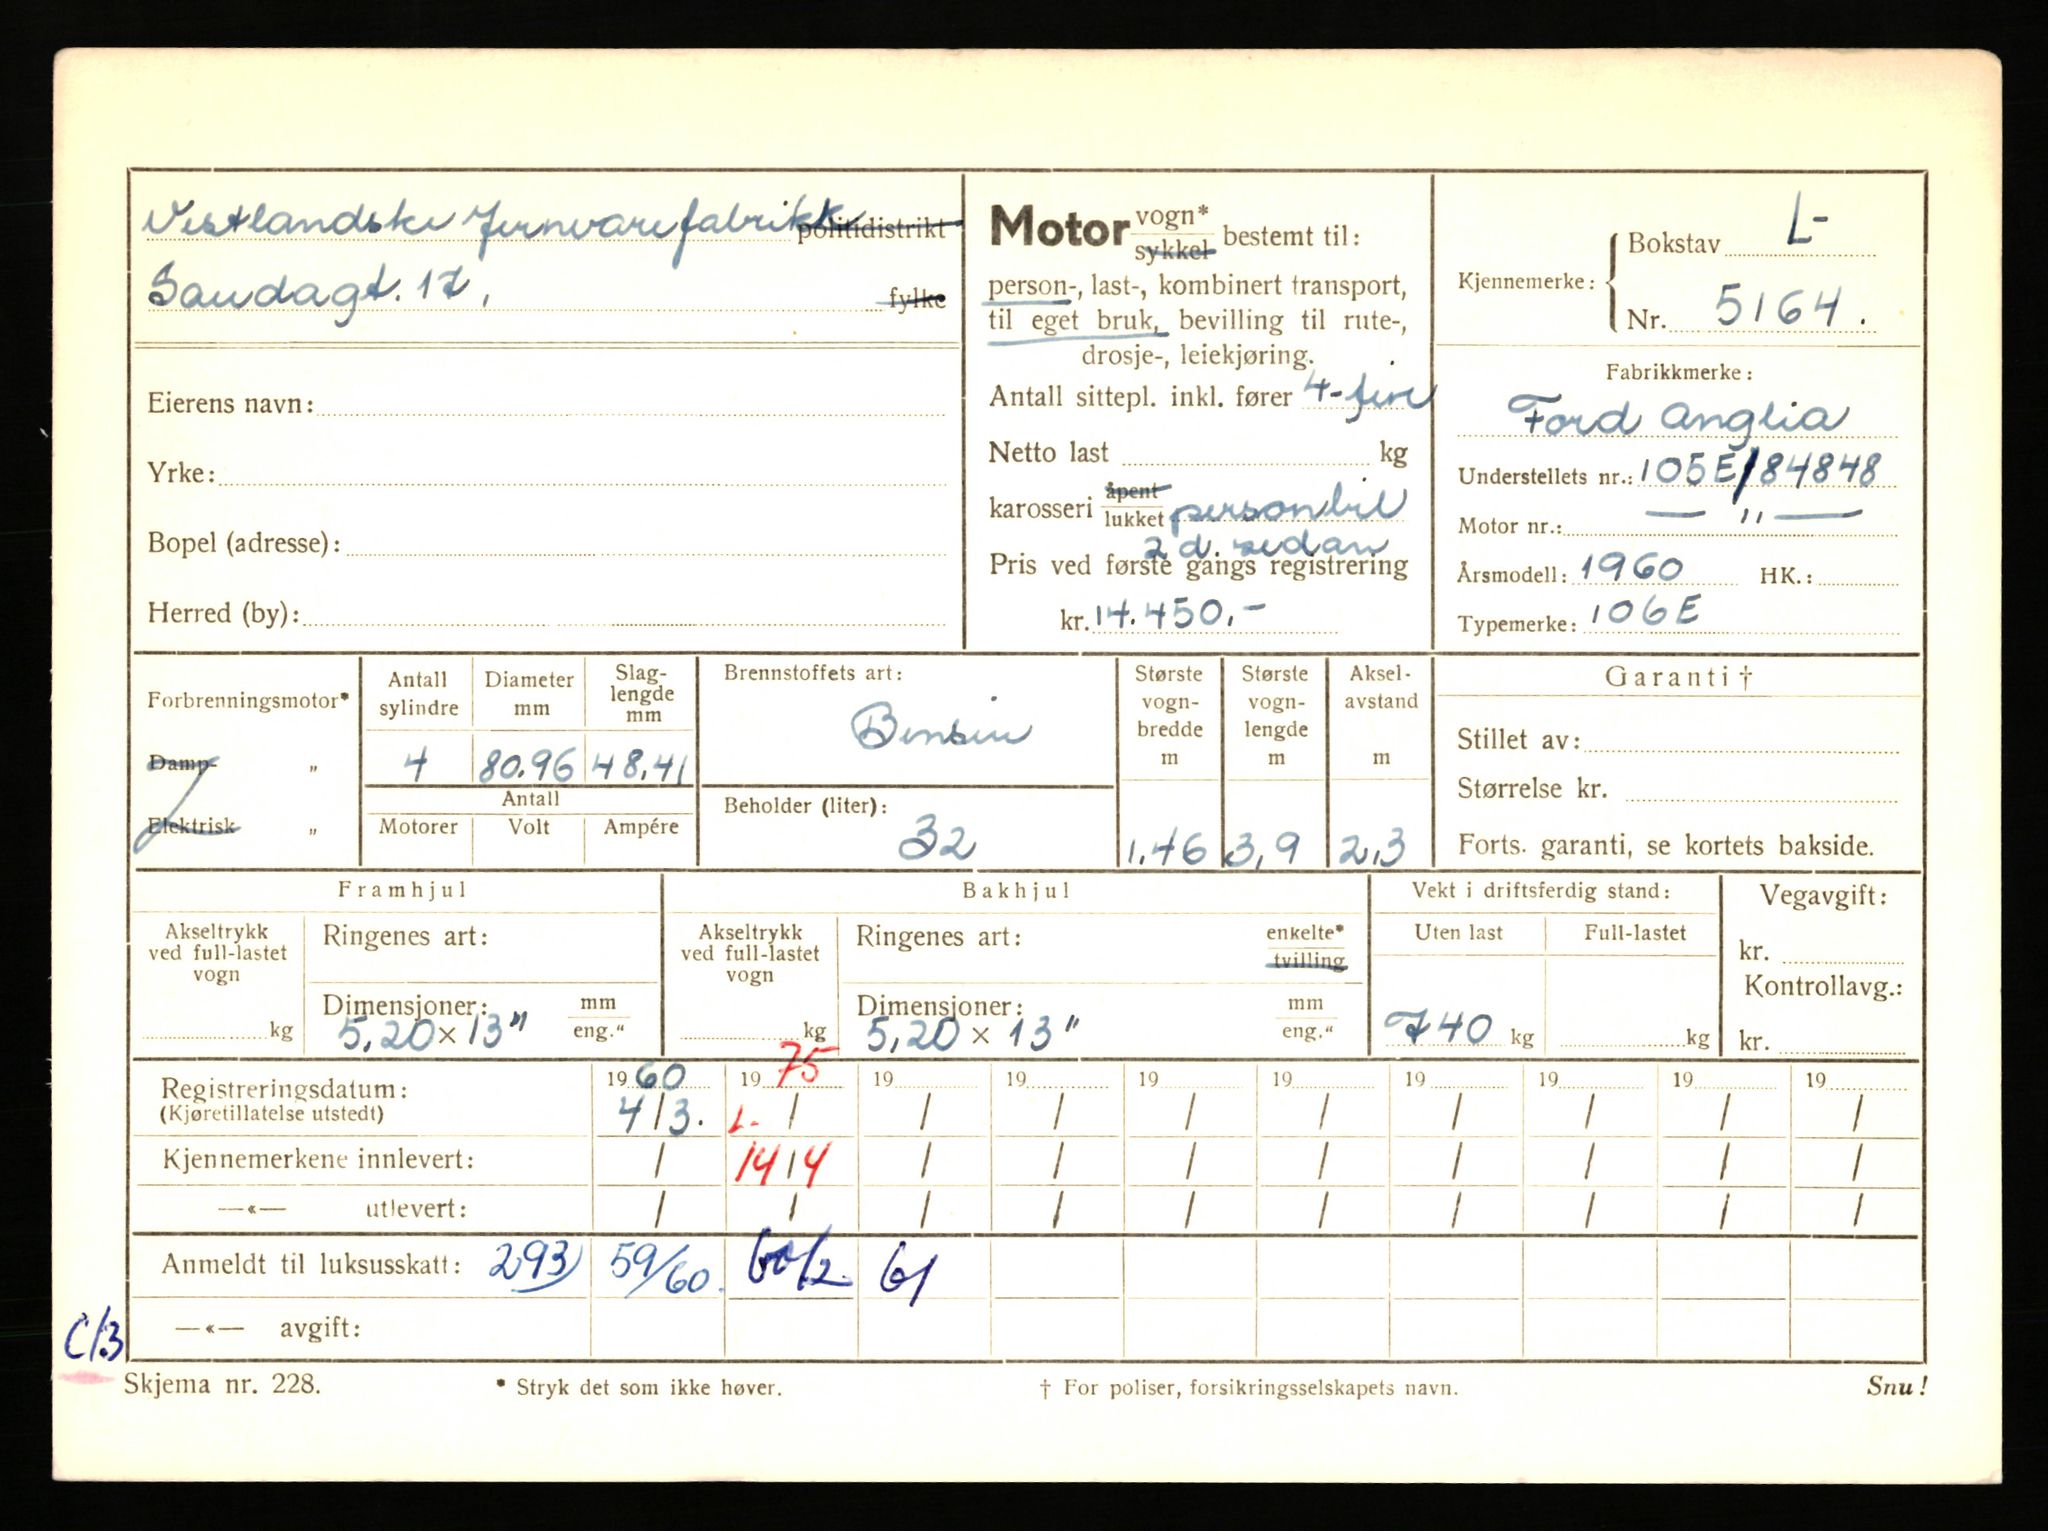 Vestlandske Jernvarefabrikk politidistrikt
Saudagt. 17, fylke
Eierens navn:
Yrke:
Bopel (adresse):
Herred (by):
Motor vogn* sykkel bestemt til:
person-, last-, kombinert transport,
til eget bruk, bevilling til rute-,
drosje-, leiekjøring.
Antall sittepl. inkl. fører 4-fire
Netto last kg
karosseri åpent lukket personbil
2 d. sedan
Pris ved første gangs registrering
kr. 14.450,-
Kjennemerke: Bokstav L-
Nr. 5164.
Fabrikkmerke:
Ford Anglia
Understellets nr.: 105E/84848
Motor nr.: — " —
Årsmodell: 1960 HK.:
Typemerke: 106E
Forbrenningsmotor*
Damp- "
Elektrisk "
Antall sylindre
4
Diameter mm
80.96
Slag-lengde mm
48.41
Antall
Motorer Volt Ampére
Brennstoffets art:
Bensin
Beholder (liter):
32
Største vogn-bredde m
1.46
Største vogn-lengde m
3,9
Aksel-avstand m
2,3
Garanti †
Stillet av:
Størrelse kr.
Forts. garanti, se kortets bakside.
Framhjul
Akseltrykk ved full-lastet vogn
kg
Ringenes art:
Dimensjoner: mm eng."
5,20 x 13"
Bakhjul
Akseltrykk ved full-lastet vogn
kg
Ringenes art: enkelte* tvilling
Dimensjoner: mm eng."
5,20 x 13"
Vekt i driftsferdig stand:
Uten last Full-lastet
740 kg kg
Vegavgift:
kr.
Kontrollavg.:
kr.
Registreringsdatum: 1960 1975 19 19 19 19 19 19 19 19
(Kjøretillatelse utstedt) 4/3. L- / / / / / / / / /
Kjennemerkene innlevert: / 14/4 / / / / / / / /
—«— utlevert: / / / / / / / / / /
Anmeldt til luksusskatt: 293 59/60. 60/2. 61
—«— avgift:
C/3
Skjema nr. 228. * Stryk det som ikke høver. † For poliser, forsikringsselskapets navn. Snu!